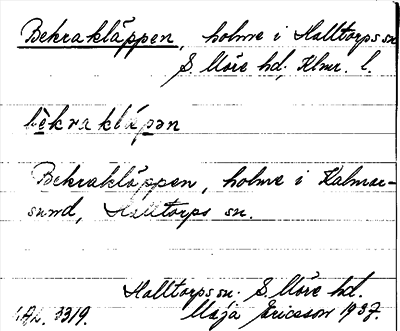 Bekrakläppen, holme i Halltorps sn
S. Möre hd, Klmr. l.
bèkrakläpən
Bekrakläppen, holme i Kalmar-
sund, Halltorps sn.
Halltorps sn. S. Möre hd.
3319. Maja Ericsson 1937.